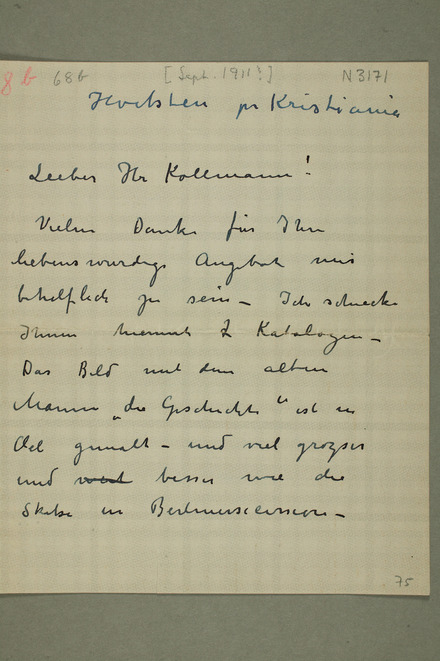 8b 68b [Sept. 1911?] N3171
Hvitsten pr Kristiania
Lieber Hr Kollmann!
Vielen Dank für Ihr
liebenswürdige Angebot mir
behilflich zu sein – Ich schicke
Ihnen hiermit 2 Katalogen –
Das Bild mit dem alten
Mannn „die Geschichte“ ist in
Oel gemalt – und viel grozser
und besser wie die
Skitse in Berlinersecession –
75